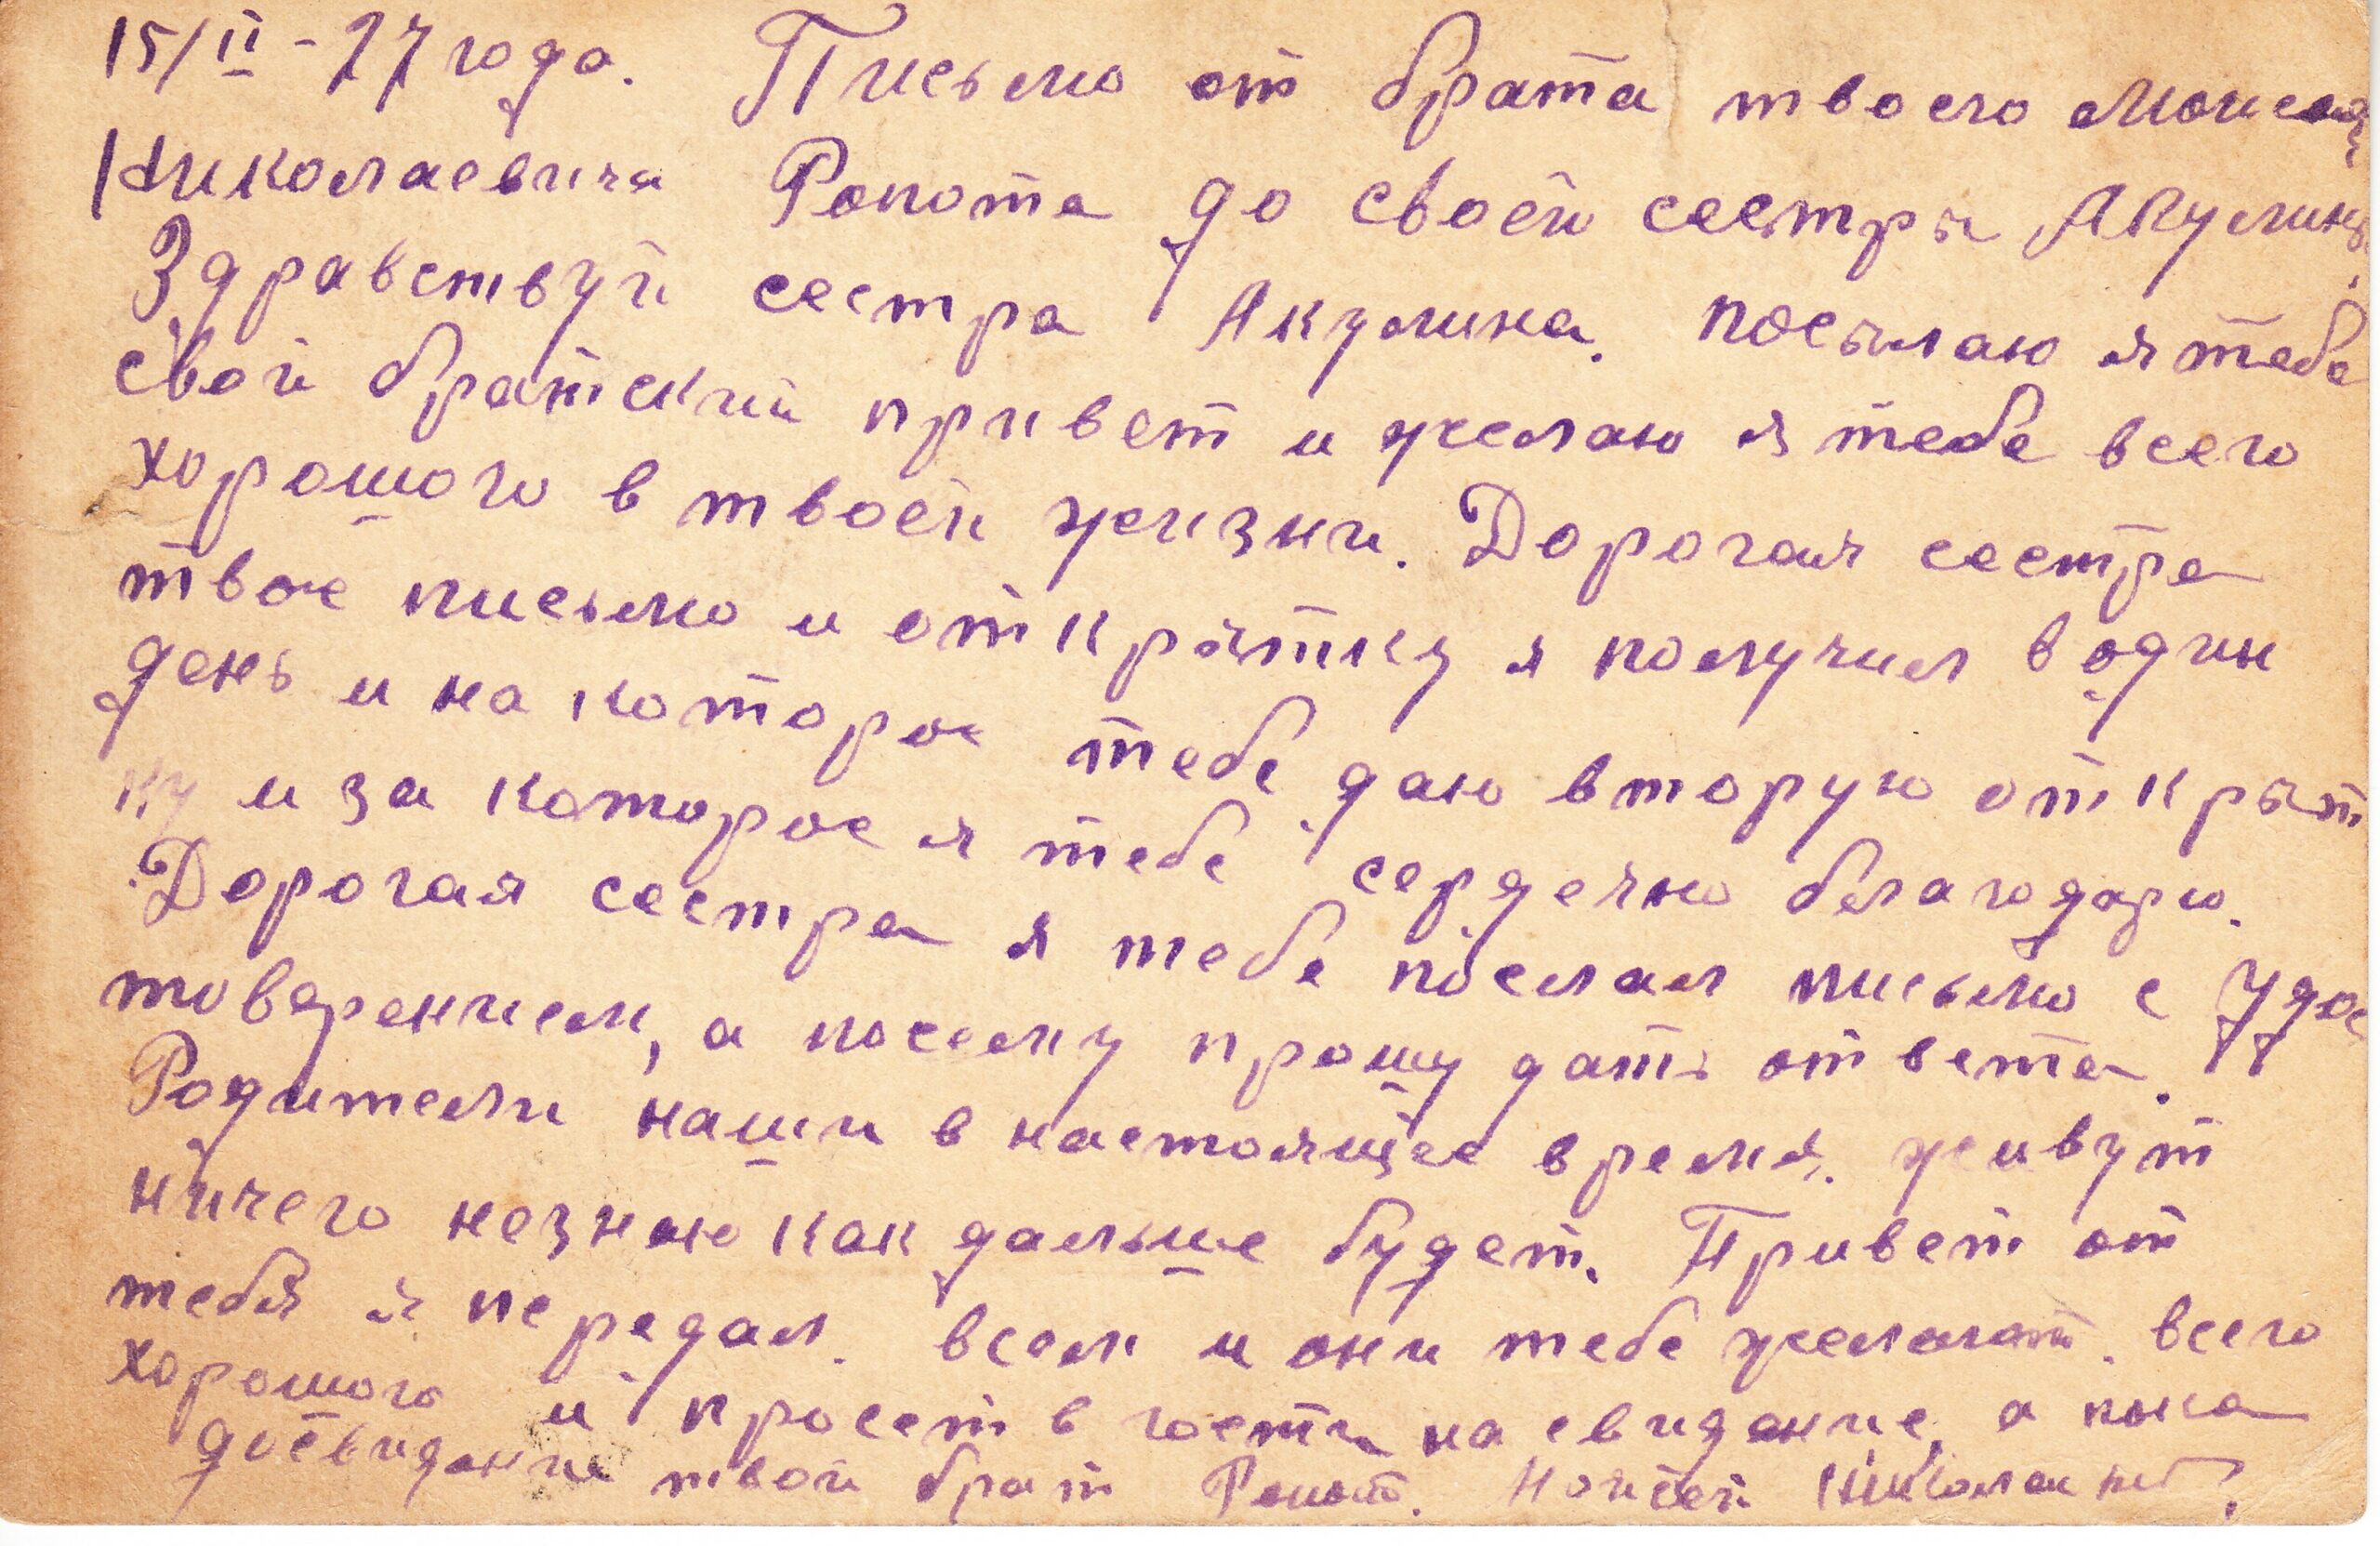 15/II - 27 года. Письмо от брата твоего Моисея
Николаевича Ропота до своей сестры Акулины.
Здравствуй сестра Акулина. посылаю я тебе
свой братский привет и желаю я тебе всего
хорошого в твоей жизни. Дорогая сестра
твое письмо и открытку я получил в один
день и на которое тебе даю вторую открыт
ку и за которое я тебе сердечно благодарю.
Дорогая сестра я тебе послал письмо с Удос
товерением, а посему прошу дать ответа.
Родители наши в настоящее время. живут
ничего незнаю как дальше будет. Привет от
тебя я передал. всем и они тебе желают. всего
хорошого и просет в гости на свидание, а пока
досвидание твой брат Ропот. Моисей